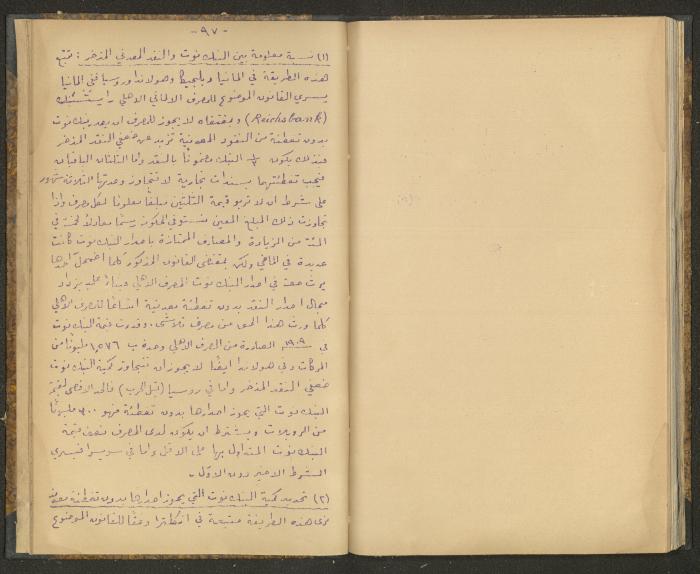 -٩٧-
(١) نسبة معلومة بين البنك نوت والنقد المعدني المذخر : تتبع
هذه الطريقة في المانيا وبلجيكا وهولاندا وروسيا ففي المانيا
يسري القانون الموضوع للمصرف الالماني الاهلي رايشسبنك
(Reichsbank) وبمقتضاه لا يجوز للمصرف ان يصدر بنك نوت
بدون تغطية من النقود المعدنية تزيد عن ضعفي النقد المذخر
فبذلك يكون ١/٣ البنك مضمونًا بالنقد واما الثلثان الباقيان
فيجب تغطيتهما بسندات تجارية لا تتجاوز مدتها الثلاثة شهور
على شرط ان لا تربو قيمة الثلثين مبلغًا معلومًا لكل مصرف واذا
تجاوزت ذلك المبلغ المعين فتستوفي الحكومة رسمًا معادلاً لخمسة في
المئة من الزيادة والمصارف الممتازة باصدار البنك نوت كانت
عديدة في الماضي ولكن بمقتضى القانون المذكور كلما اضمحل احدها
يرث حقه في اصدار البنك نوت المصرف الاهلي وبناءً عليه يزداد
مجال اصدار النقد بدون تغطية معدنية اتساعًا للمصرف الاهلي
كلما ورث هذا الحق من مصرف تلاشى. وقدرت قيمة البنك نوت
في ١٩٠٩ الصادرة من المصرف الاهلي وحده ب ١,٥٧٦ مليونًا من
المركات وفي هولاندا ايضًا لا يجوز ان تتجاوز كمية البنك نوت
ضعفي النقد المذخر واما في روسيا (قبل الحرب) فالحد الاقصى لقيمة
البنك نوت التي يجوز اصدارها بدون تغطية فهو ٣٠٠ مليونًا
من الروبلات ويشترط ان يكون لدى المصرف نصف قيمة
البنك نوت المتداول بها على الاقل واما في سويسرا فيسري
الشرط الاخير دون الاول .
(٢) تحديد كمية البنك نوت التي يجوز اصدارها بدون تغطية معدنية
نرى هذه الطريقة متبعة في انكلترا وفقًا للقانون الموضوع